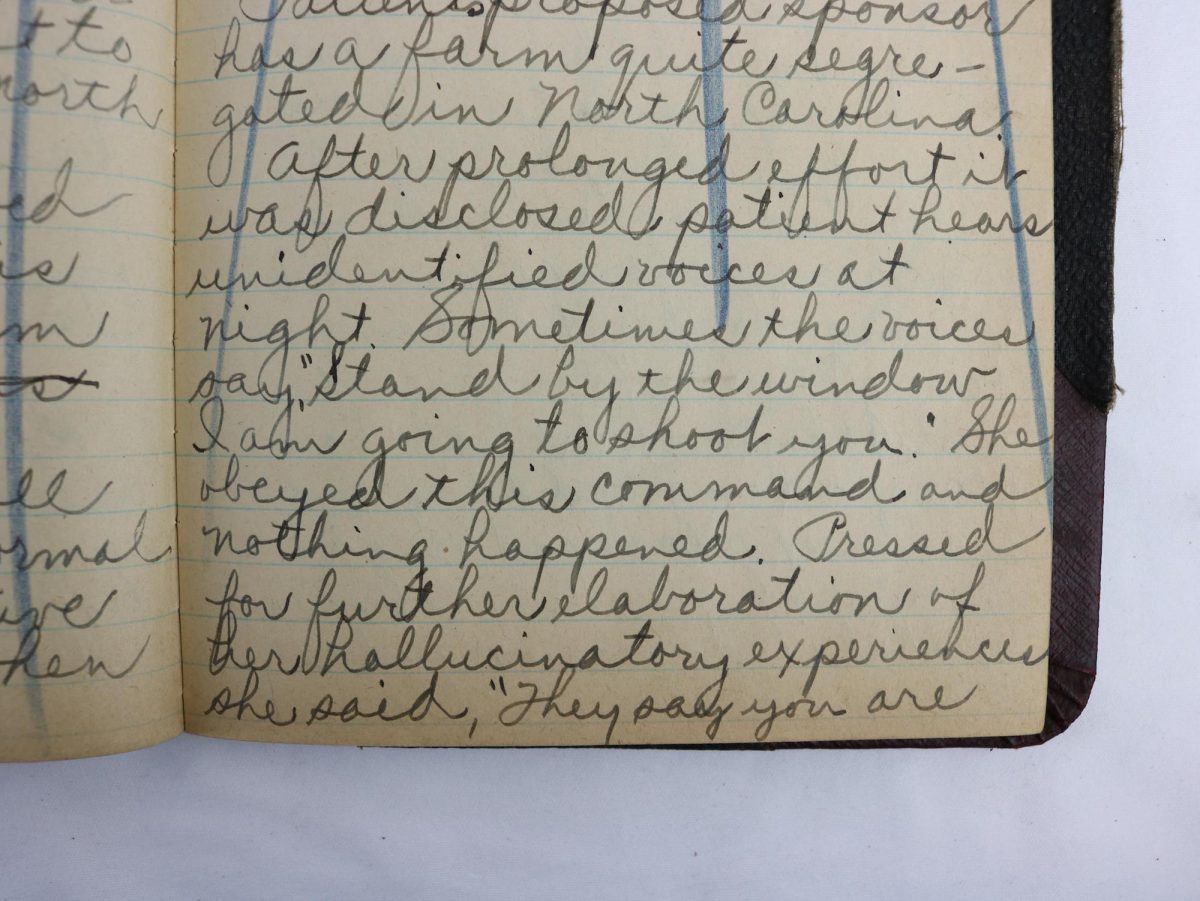 t to
north
ed
is
m
ell
ormal
ive
hen
Patient's proposed sponsor
has a farm quite segre-
gated in North Carolina.
After prolonged effort it
was disclosed patient hears
unidentified voices at
night. Sometimes the voices
say, "Stand by the window
I am going to shoot you." She
obeyed this command and
nothing happened. Pressed
for further elaboration of
her hallucinatory experiences
she said, "They say you are